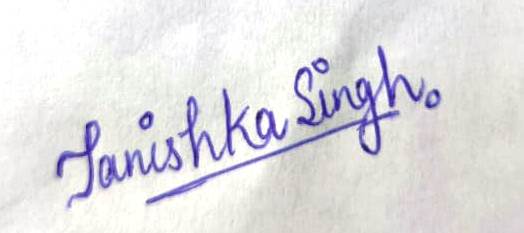 Tanishka Singh.